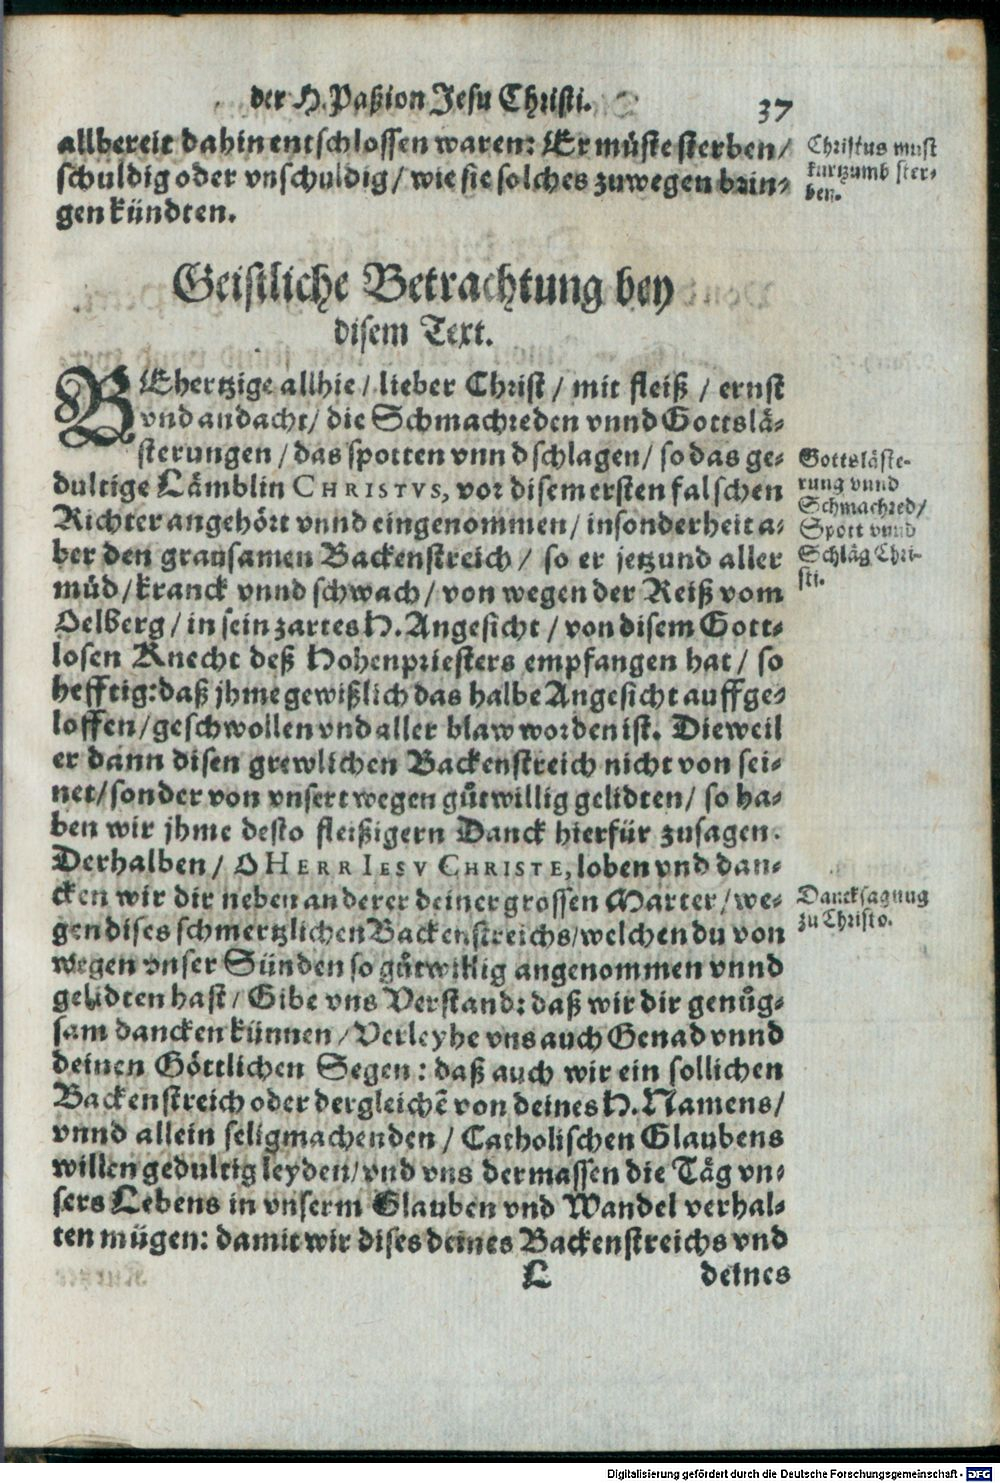 der H. Paßion Jesu Christi. 37
allbereit dahin entschlossen waren: Er müste sterben/
schuldig oder vnschuldig/ wie sie solches zuwegen brin-
gen kündten.
Christus must
kurtzumb ster-
ben.
Geistliche Betrachtung bey
disem Text.
BEhertzige allhie/ lieber Christ/ mit fleiß/ ernst
vnd andacht/ die Schmachreden vnnd Gottslä-
sterungen/ das spotten vnnd schlagen/ so das ge-
dultige Lämblin CHRISTVS, vor disem ersten falschen
Richter angehört vnnd eingenommen/ insonderheit a-
ber den grausamen Backenstreich/ so er jetzund aller
müd/ kranck vnnd schwach/ von wegen der Reiß vom
Oelberg/ in sein zartes H. Angesicht/ von disem Gott-
losen Knecht deß Hohenpriesters empfangen hat/ so
hefftig: daß jhme gewißlich das halbe Angesicht auffge-
loffen/ geschwollen vnd aller blaw worden ist. Dieweil
er dann disen grewlichen Backenstreich nicht von sei-
net/ sonder von vnsert wegen gůtwillig gelidten/ so ha-
ben wir jhme desto fleißigern Danck hierfür zusagen.
Derhalben/ O HERR IESV CHRISTE, loben vnd dan-
cken wir dir neben anderer deiner grossen Marter/ we-
gen dises schmertzlichen Backenstreichs/ welchen du von
wegen vnser Sünden so gůtwillig angenommen vnnd
gelidten hast/ Gibe vns Verstand: daß wir dir genůg-
sam dancken künnen/ Verleyhe vns auch Genad vnnd
deinen Göttlichen Segen: daß auch wir ein sollichen
Backenstreich oder dergleichē von deines H. Namens/
vnnd allein seligmachenden/ Catholischen Glaubens
willen gedultig leyden/ vnd vns dermassen die Täg vn-
sers Lebens in vnserm Glauben vnd Wandel verhal-
ten mügen: damit wir dises deines Backenstreichs vnd
Gottsläste-
rung vnnd
Schmachred/
Spott vnnd
Schläg Chri-
sti.
Dancksagung
zu Christo.
L deines
Digitalisierung gefördert durch die Deutsche Forschungsgemeinschaft - DFG